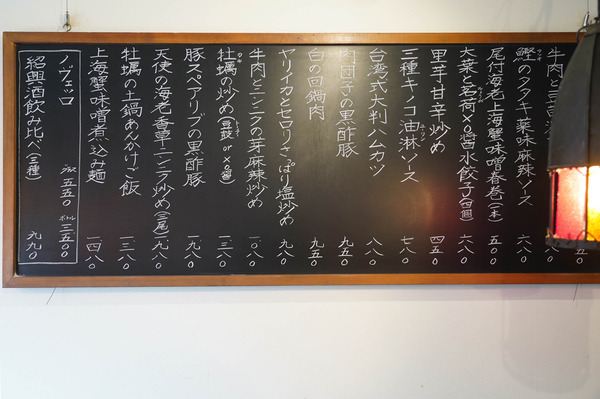 牛肉と
五〇
鰹のタタキ薬味麻辣ソース 六八〇
尾付海老上海蟹味噌春巻(一本)
大葉と茗荷XO醤水餃子(四個) 六八〇
里芋甘辛炒め 四五〇
三種キノコ油淋ソース 七八〇
台湾式大判ハムカツ 八八〇
肉団子の黒酢豚 九五〇
白の回鍋肉 九五〇
ヤリイカとセロリさっぱり塩炒め 九八〇
牛肉とニンニクの芽麻辣炒め 一〇八〇
牡蠣の炒め(豆豉 or XO醤) 一三八〇
豚スペアリブの黒酢豚 一九八〇
天使の海老香草ニンニク炒め(三尾) 九八〇
牡蠣の土鍋あんかけご飯 一三八〇
上海蟹味噌煮込み麺 一四八〇
ノヴェッロ グラス 五五〇 ボトル 三五〇〇
紹興酒飲み比べ(三種) 九九〇